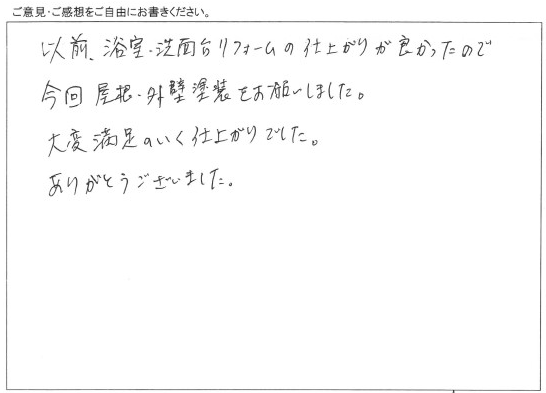 ご意見・ご感想をご自由にお書きください。
以前、浴室・洗面台リフォームの仕上がりが良かったので
今回屋根・外壁塗装をお願いしました。
大変満足のいく仕上がりでした。
ありがとうございました。